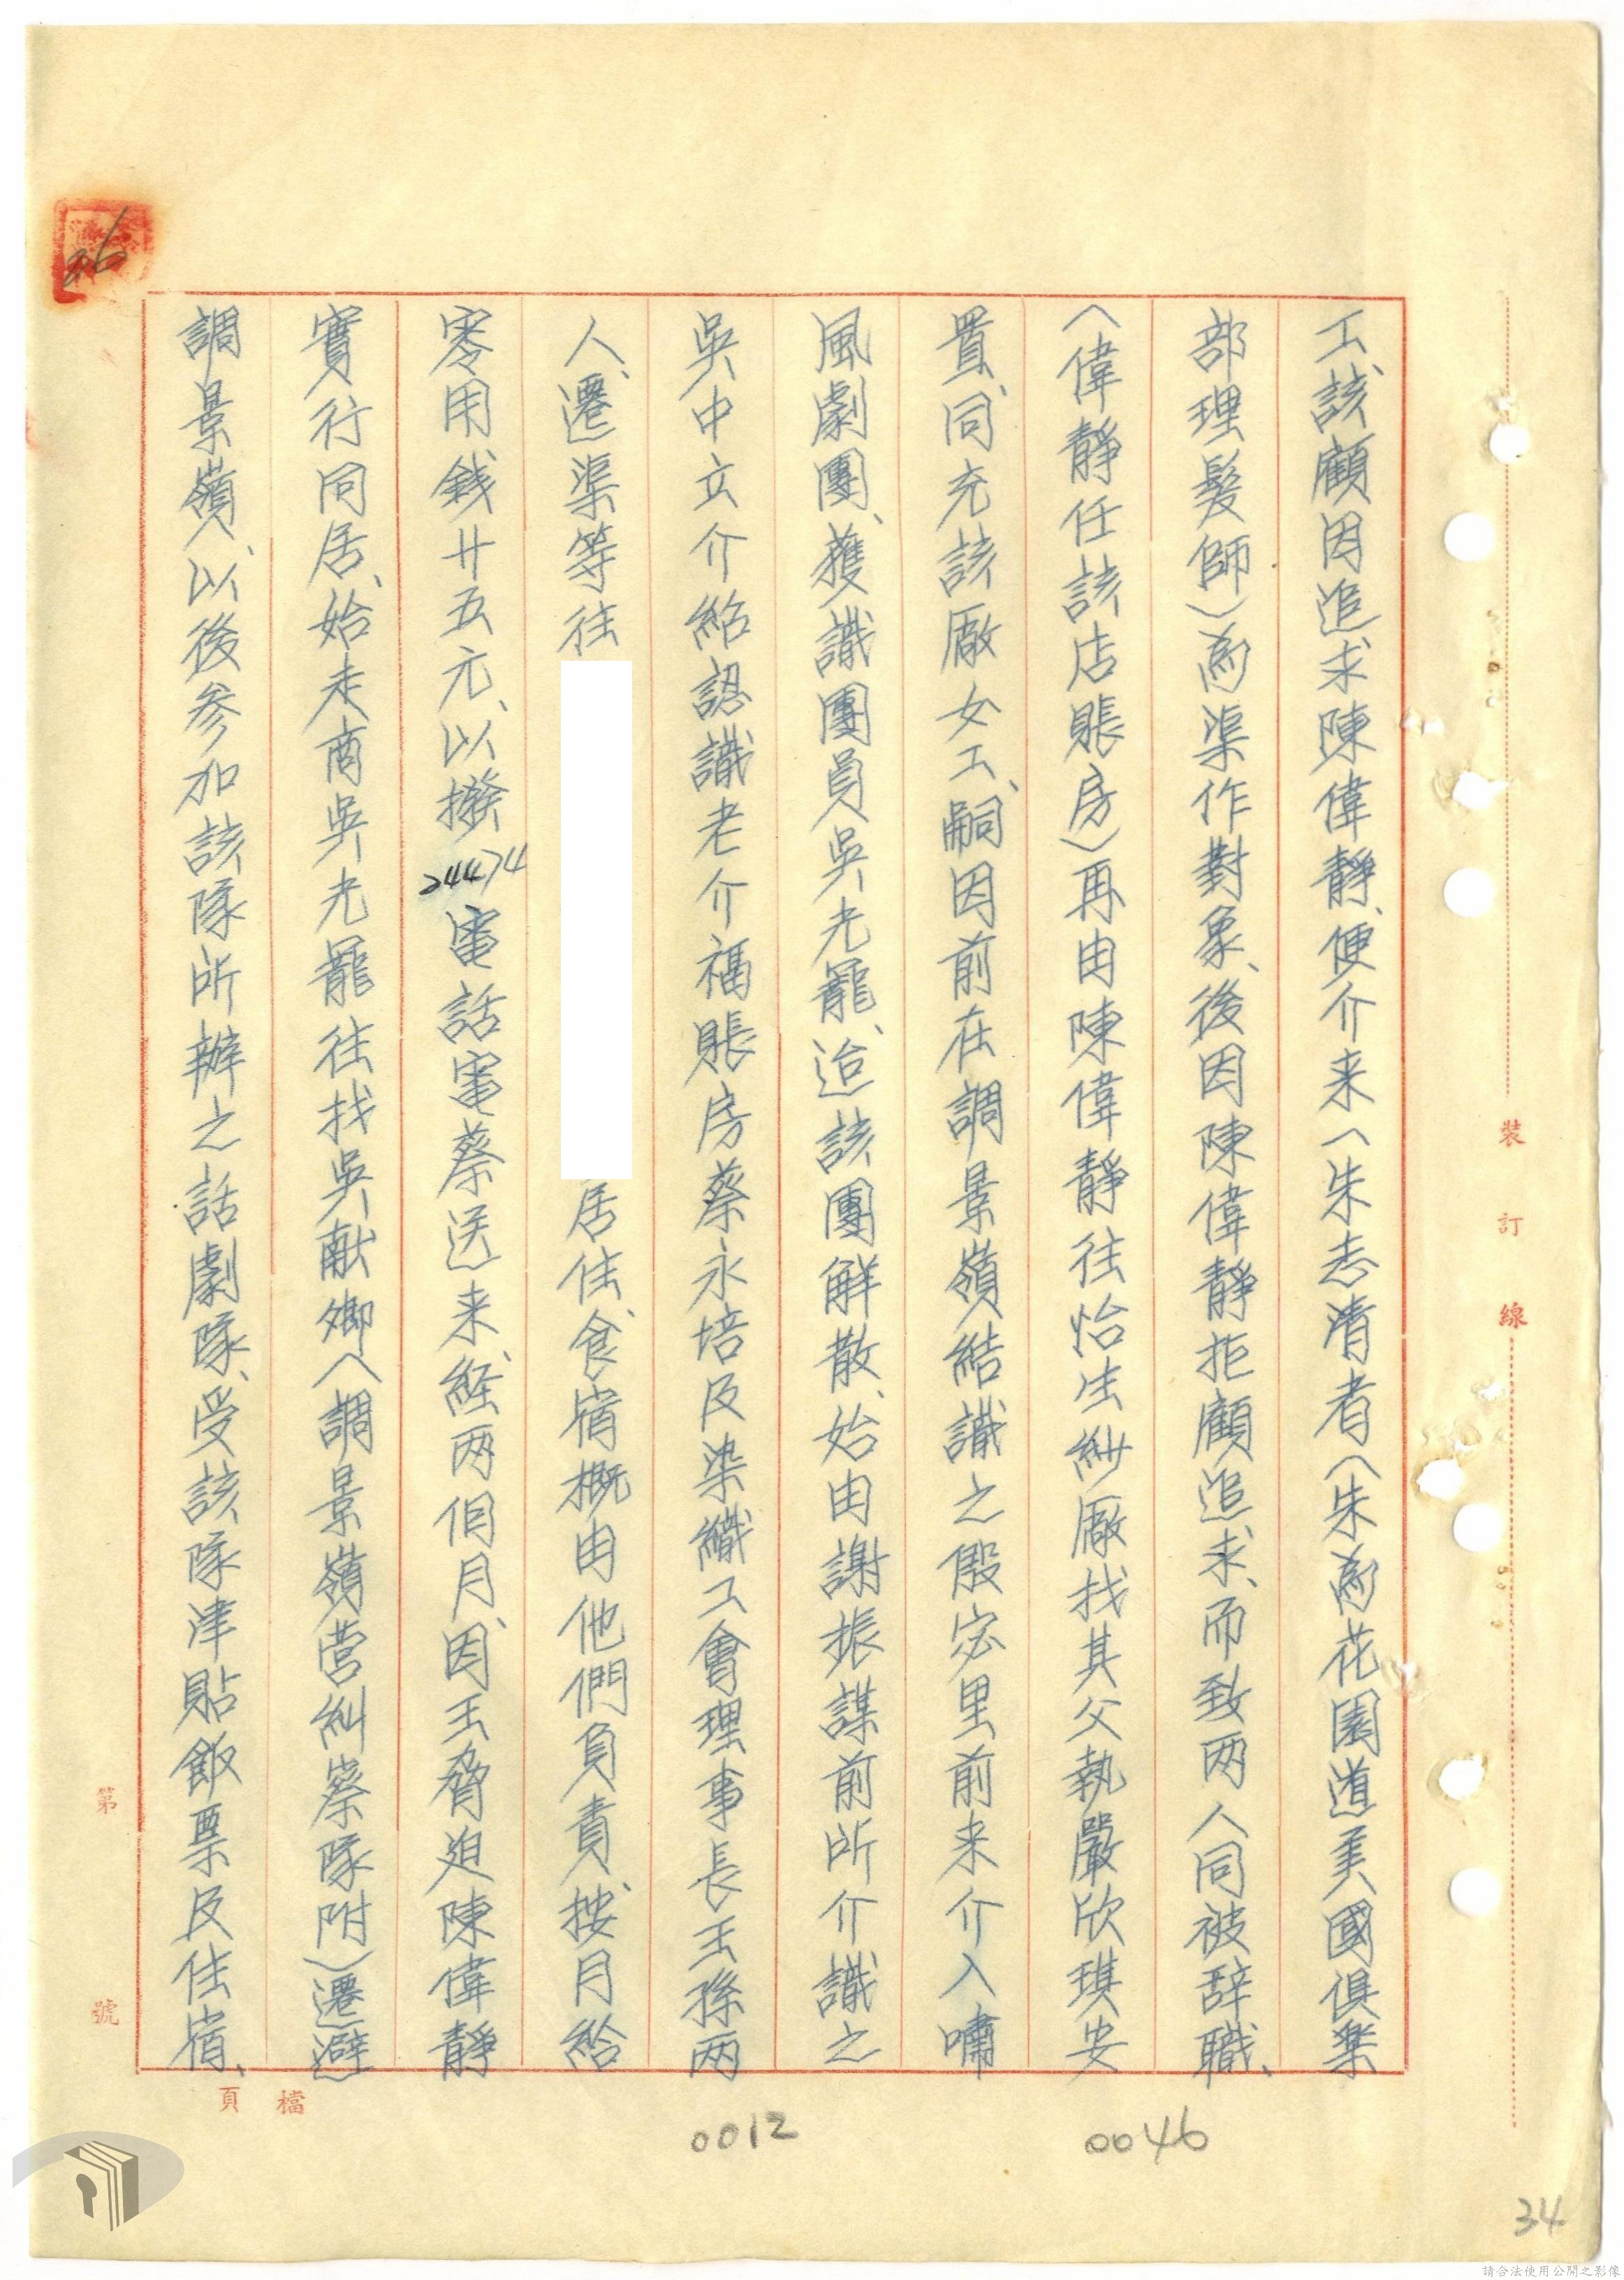 工、該顧因追求陳偉靜、便介来(朱志清者(朱為花園道美國俱樂
部理髮師)為渠作對象、後因陳偉靜拒顧追求、而致两人同被辞職、
(偉靜任該店賬房)再由陳偉靜往怡生紗廠找其父執嚴欣琪安
置、同充該廠女工、嗣因前在調景嶺結識之殷宓里前来介入嘯
風劇團、獲識團員吳光龍、迨該團解散、始由謝振謀前所介識之
吳中立介紹認識老介福賬房蔡永培及染織工會理事長王孫两
人、遷渠等往
居住、食宿概由他們負責、按月給
零用錢廿五元、以撥24474電話電蔡送来、経两個月、因王脅迫陳偉靜
實行同居、始走商吳光龍往找吳献鄉(調景嶺营糾察隊附)遷避
調景嶺、以後參加該隊所辦之話劇隊、受該隊津貼飯票及住宿、
裝訂線
第 號
檔
頁
0012
0046
34
請合法使用公開之影像